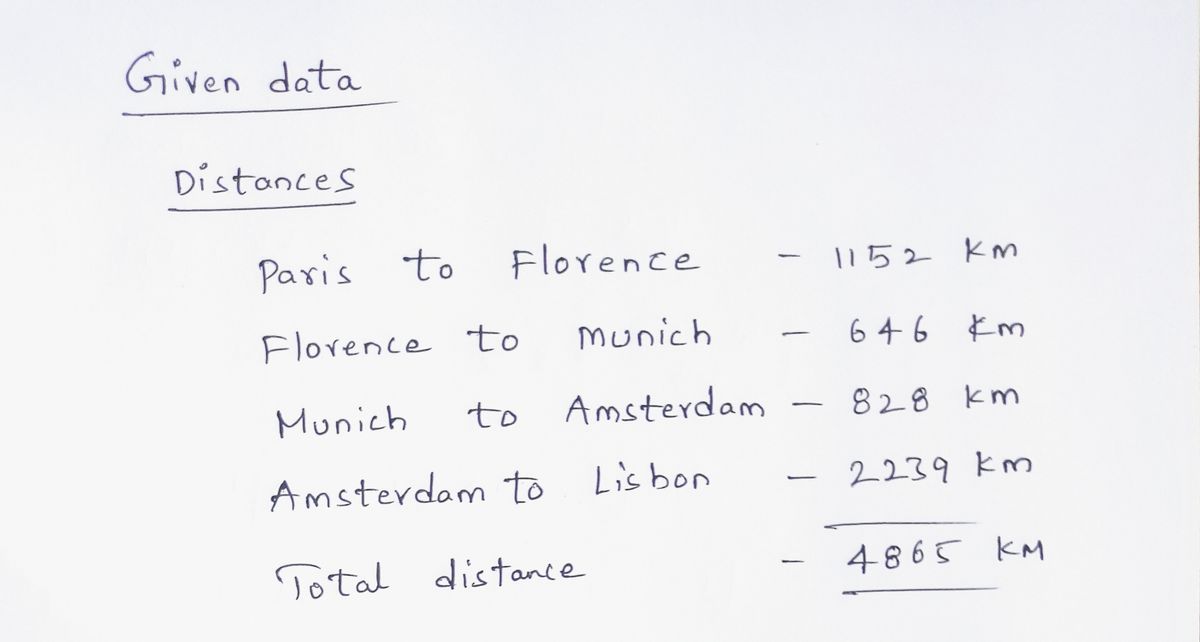 Given data
Distances
Paris to Florence - 1152 km
Florence to Munich - 646 km
Munich to Amsterdam - 828 km
Amsterdam to Lisbon - 2239 km
Total distance - 4865 KM